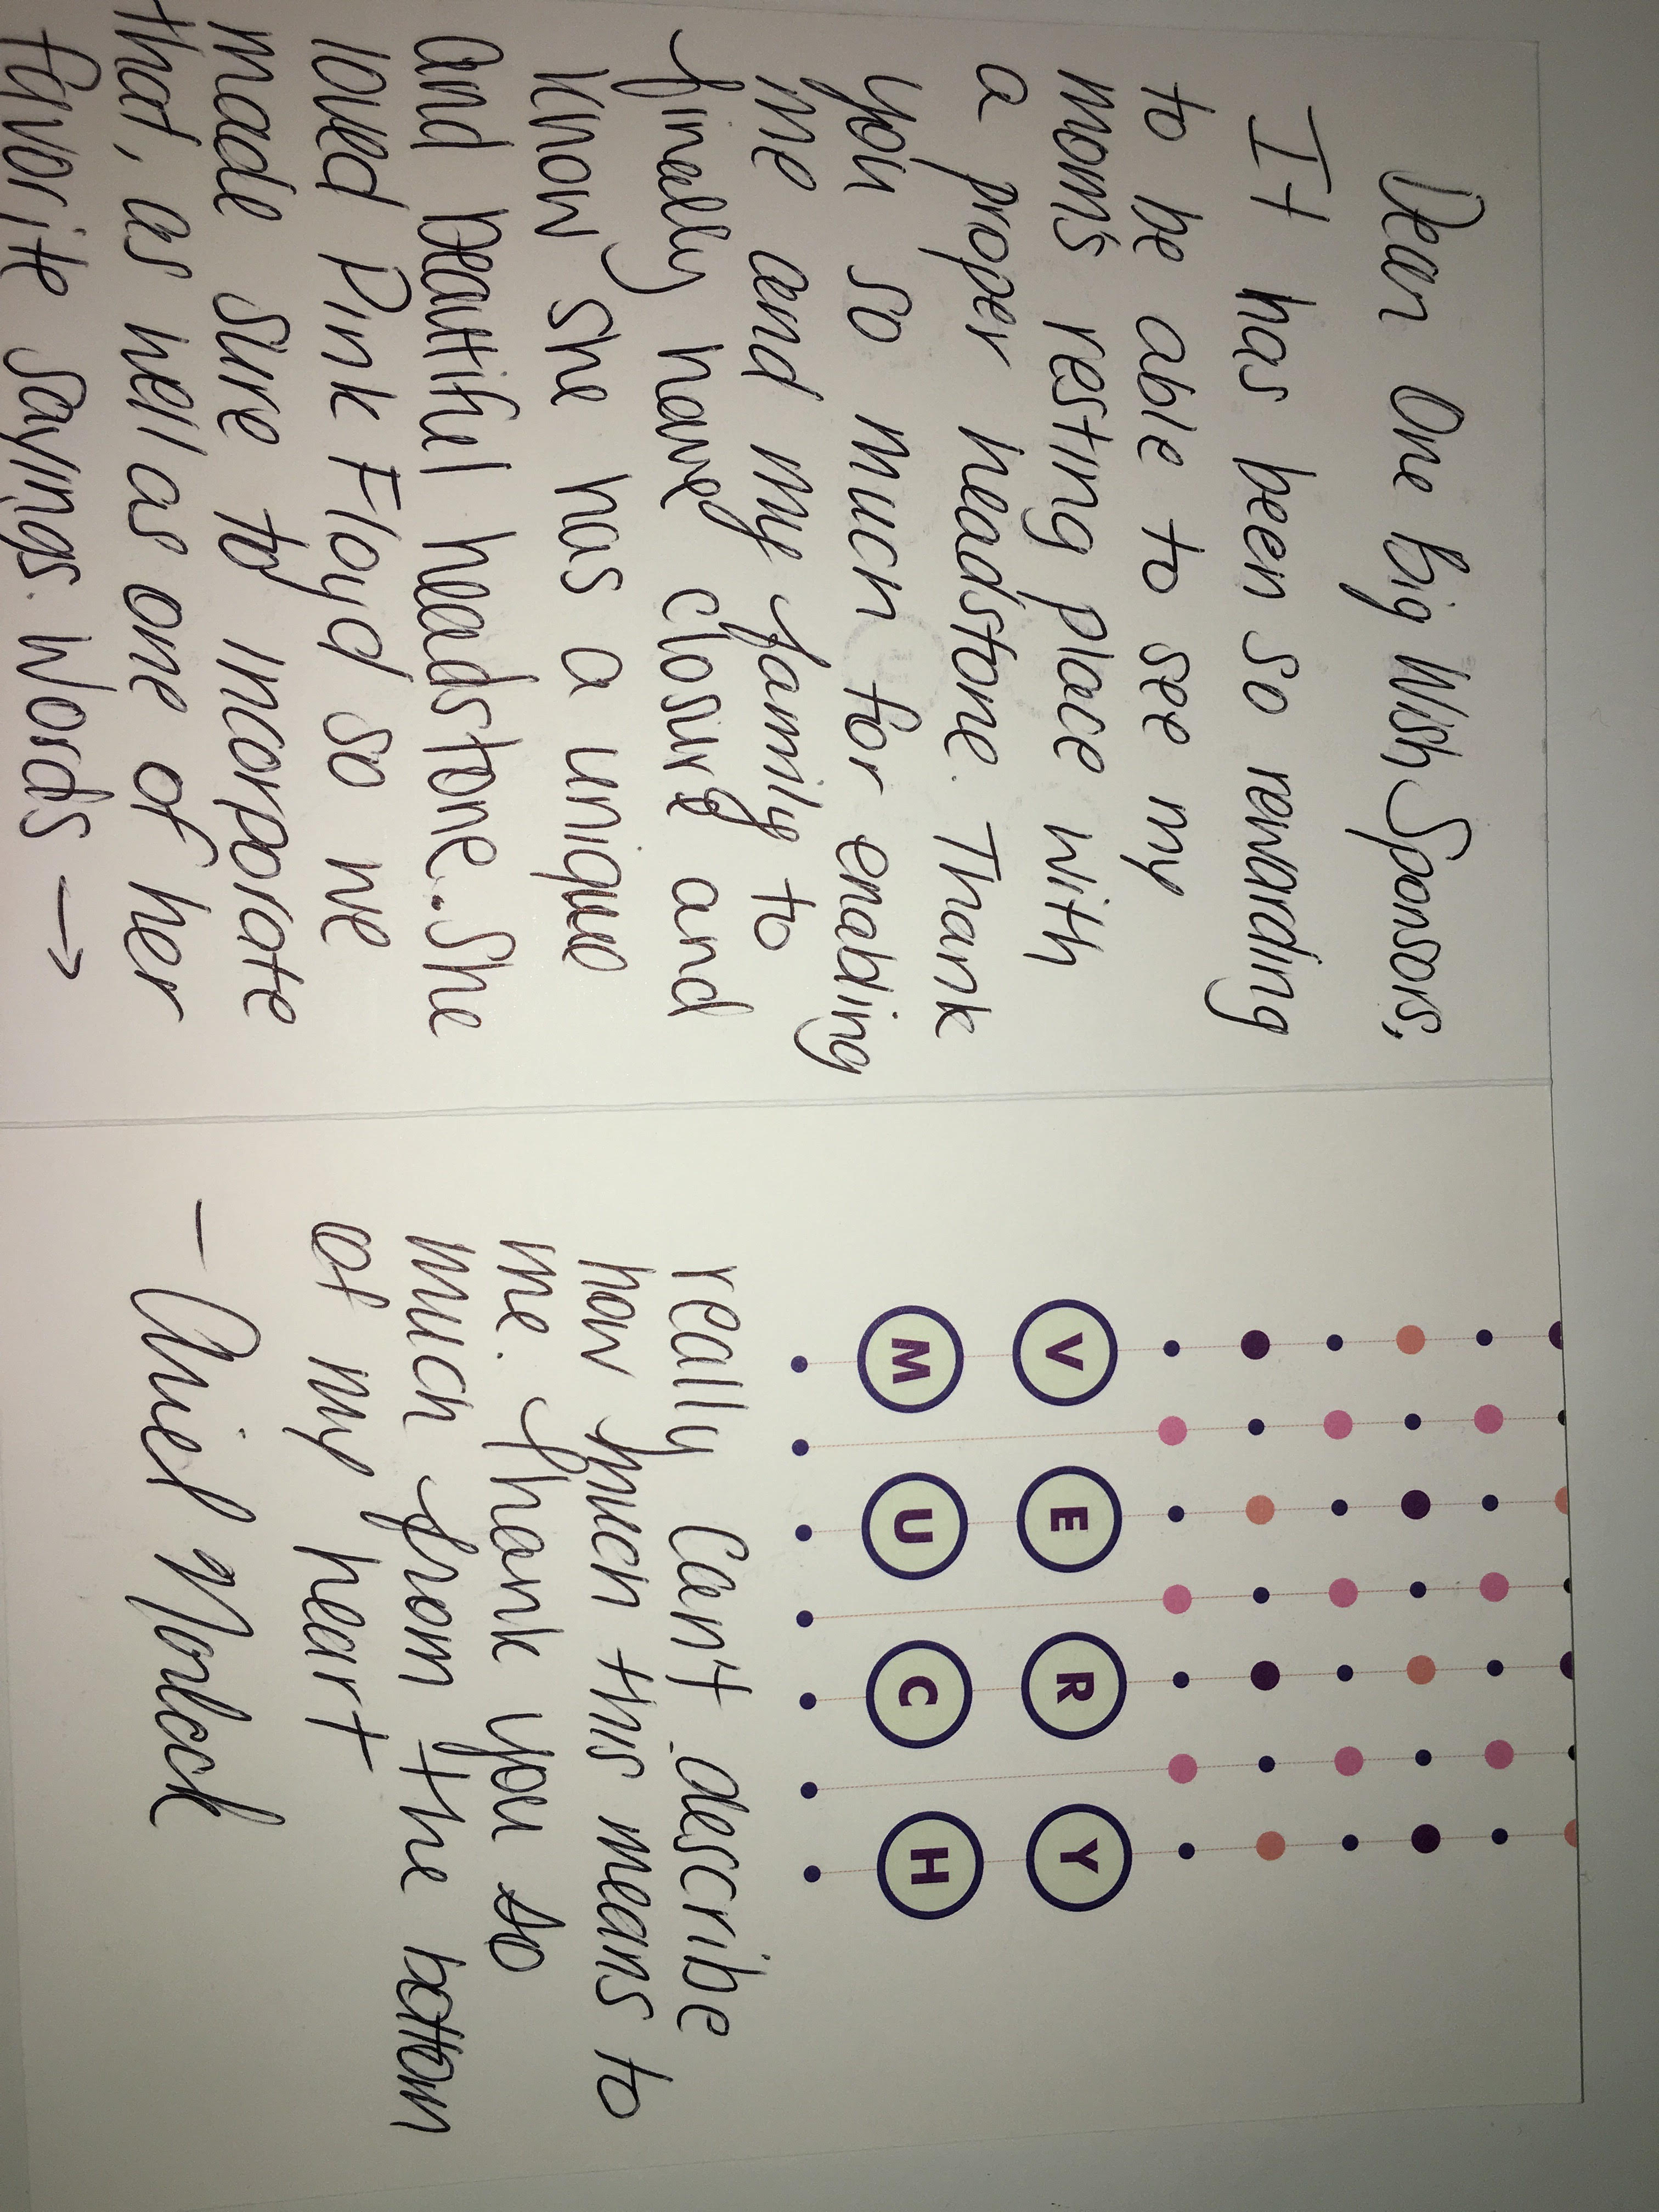 Dear One Big Wish Sponsors,
It has been so rewarding
to be able to see my
mom's resting place with
a proper headstone. Thank
you so much for enabling
me and my family to
finally have closure and
know she has a unique
and beautiful headstone. She
loved Pink Floyd so we
made sure to incorporate
that, as well as one of her
favorite sayings. Words →
VERY
MUCH
really can't describe
how much this means to
me. Thank you so
much from the bottom
of my heart
- Ariel Morlock